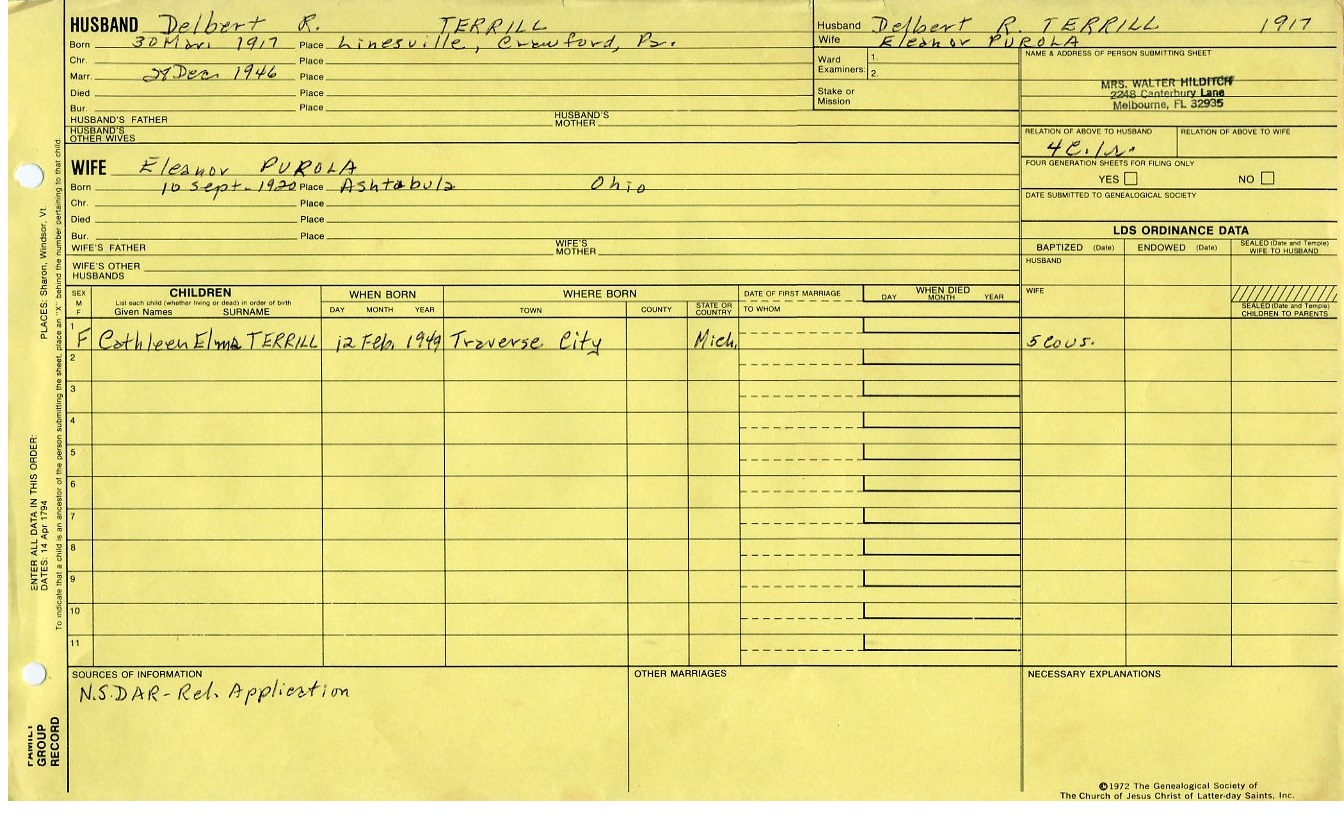 HUSBAND Delbert R. TERRILL
Born 30 Mar. 1917 Place Linesville, Crawford, Pa.
Chr. Place
Marr. 28 Dec. 1946 Place
Died Place
Bur. Place
HUSBAND'S FATHER HUSBAND'S MOTHER
HUSBAND'S OTHER WIVES
Husband Delbert R. TERRILL 1917
Wife Eleanor PUROLA
Ward Examiners: 1. 2.
Stake or Mission
NAME & ADDRESS OF PERSON SUBMITTING SHEET
MRS. WALTER HILDITCH
2248 Canterbury Lane
Melbourne, FL 32935
RELATION OF ABOVE TO HUSBAND RELATION OF ABOVE TO WIFE
4C.1r.
FOUR GENERATION SHEETS FOR FILING ONLY
YES NO
DATE SUBMITTED TO GENEALOGICAL SOCIETY
WIFE Eleanor PUROLA
Born 10 Sept - 1920 Place Ashtabula Ohio
Chr. Place
Died Place
Bur. Place
WIFE'S FATHER WIFE'S MOTHER
WIFE'S OTHER HUSBANDS
LDS ORDINANCE DATA
BAPTIZED (Date) ENDOWED (Date) SEALED (Date and Temple) WIFE TO HUSBAND
HUSBAND
WIFE
SEALED (Date and Temple) CHILDREN TO PARENTS
SEX M F
CHILDREN
List each child (whether living or dead) in order of birth
Given Names SURNAME
WHEN BORN
DAY MONTH YEAR
WHERE BORN
TOWN COUNTY STATE OR COUNTRY
DATE OF FIRST MARRIAGE
TO WHOM
WHEN DIED
DAY MONTH YEAR
1 F Cathleen Elma TERRILL 12 Feb. 1949 Traverse City Mich. 5 cous.
2
3
4
5
6
7
8
9
10
11
SOURCES OF INFORMATION
N.S.DAR - Rel. Application
OTHER MARRIAGES
NECESSARY EXPLANATIONS
©1972 The Genealogical Society of
The Church of Jesus Christ of Latter-day Saints, Inc.
FAMILY GROUP RECORD
ENTER ALL DATA IN THIS ORDER:
DATES: 14 Apr 1794
PLACES: Sharon, Windsor, Vt.
To indicate that a child is an ancestor of the person submitting the sheet, place an "X" behind the number pertaining to that child.